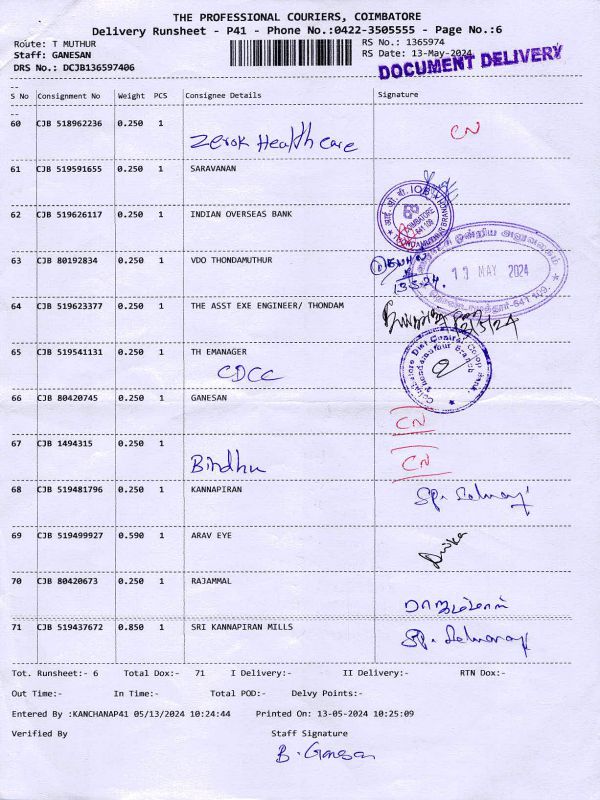 THE PROFESSIONAL COURIERS, COIMBATORE
Delivery Runsheet - P41 - Phone No.:0422-3505555 - Page No.:6
Route: T MUTHUR
RS No.: 1365974
Staff: GANESAN
RS Date: 13-May-2024
DRS No.: DCJB136597406
DOCUMENT DELIVERY
S No Consignment No Weight PCS Consignee Details Signature
60 CJB 518962236 0.250 1 Zerok Healthcare CN
61 CJB 519591655 0.250 1 SARAVANAN
62 CJB 519626117 0.250 1 INDIAN OVERSEAS BANK
63 CJB 80192834 0.250 1 VDO THONDAMUTHUR
13 MAY 2024
13.5.24.
64 CJB 519623377 0.250 1 THE ASST EXE ENGINEER/ THONDAM
65 CJB 519541131 0.250 1 TH EMANAGER
CDCC
66 CJB 80420745 0.250 1 GANESAN CN
67 CJB 1494315 0.250 1 Bindhu CN
68 CJB 519481796 0.250 1 KANNAPIRAN
69 CJB 519499927 0.590 1 ARAV EYE
70 CJB 80420673 0.250 1 RAJAMMAL
71 CJB 519437672 0.850 1 SRI KANNAPIRAN MILLS
Tot. Runsheet:- 6 Total Dox:- 71 I Delivery:- II Delivery:- RTN Dox:-
Out Time:- In Time:- Total POD:- Delvy Points:-
Entered By :KANCHANAP41 05/13/2024 10:24:44 Printed On: 13-05-2024 10:25:09
Verified By Staff Signature
B. Ganesan